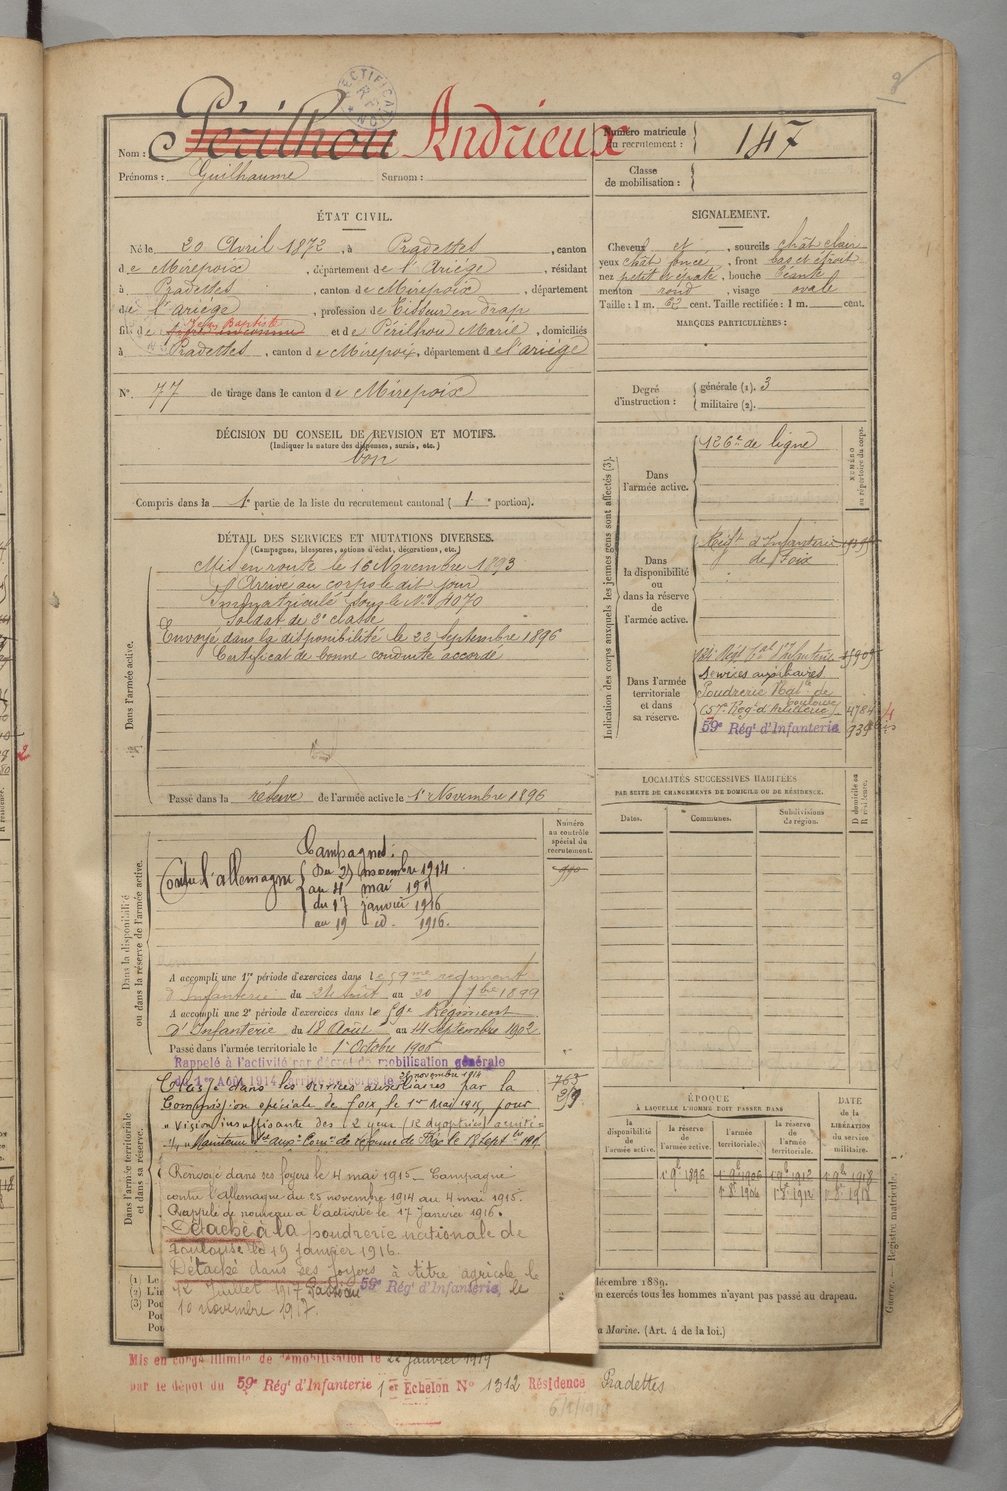 Nom : Périlhou Andrieux
Prénoms : Guilhaume Surnom :
Numéro matricule du recrutement : 147
Classe de mobilisation :
ÉTAT CIVIL.
Né le 20 Avril 1872, à Pradettes, canton
de Mirepoix, département de l'Ariége, résidant
à Pradettes, canton de Mirepoix, département
de l'ariége, profession de Tisseur en drap
fils de Jean Baptiste et de Périlhou Marie, domiciliés
à Pradettes, canton de Mirepoix, département de l'ariége
N° 77 de tirage dans le canton de Mirepoix
DÉCISION DU CONSEIL DE REVISION ET MOTIFS.
(Indiquer la nature des dispenses, sursis, etc.)
bon
Compris dans la 1e partie de la liste du recrutement cantonal ( 1e portion).
DÉTAIL DES SERVICES ET MUTATIONS DIVERSES.
(Campagnes, blessures, actions d'éclat, décorations, etc.)
Dans l'armée active.
Mis en route le 16 Novembre 1893
Arrivé au corps le dit jour
Immatriculé sous le N° 4070
Soldat de 2e classe
Envoyé dans la disponibilité le 22 Septembre 1896
Certificat de bonne conduite accordé
Passé dans la réserve de l'armée active le 1er Novembre 1896
Dans la disponibilité ou dans la réserve de l'armée active.
Numéro au contrôle spécial du recrutement.
990
Campagnes.
Contre l'allemagne
du 25 novembre 1914
au 4 mai 191
du 17 janvier 1916
au 19 id. 1916.
A accompli une 1re période d'exercices dans le 59me régiment
d'Infanterie du 24 Août au 20 7bre 1899
A accompli une 2e période d'exercices dans le 59e Régiment
d'Infanterie du 18 Août au 14 Septembre 1902
Passé dans l'armée territoriale le 1er Octobre 1906
Rappelé à l'activité par décret de mobilisation générale
du 1er Août 1914. Arrivé au corps le 25 novembre 1914
Dans l'armée territoriale et dans sa réserve.
763
Classé dans les services auxiliaires par la
Commission spéciale de Foix, le 1er mai 1915, pour
"Vision insuffisante des 2 yeux (12 dyoptries)
Maintenu
Renvoyé dans ses foyers le 4 mai 1915 - Campagne
contre l'Allemagne du 25 novembre 1914 au 4 mai 1915.
Rappelé de nouveau à l'activité le 17 Janvier 1916.
Détaché à la poudrerie nationale de
Toulouse le 19 janvier 1916.
Détaché dans ses foyers à titre agricole le
12 Juillet 1917 Passé au 59e Régt d'Infanterie, le
10 novembre 1917.
Mis en congé illimité de démobilisation le 22 janvier 1919
par le dépôt du 59e Régt d'Infanterie 1er Echelon N° 1312 Résidence Pradettes
SIGNALEMENT.
Cheveux et, sourcils chât clair
yeux chât foncé, front bas et étroit
nez petit et épaté, bouche béante
menton rond, visage ovale
Taille : 1 m. 62 cent. Taille rectifiée : 1 m. cent.
MARQUES PARTICULIÈRES :
Degré d'instruction : générale (1). 3
militaire (2).
Indication des corps auxquels les jeunes gens sont affectés (3).
NUMÉRO au répertoire du corps.
Dans l'armée active.
126e de ligne
Dans la disponibilité ou dans la réserve de l'armée active.
Régt d'Infanterie
de Foix
Dans l'armée territoriale et dans sa réserve.
Services auxiliaires
Poudrerie Natle de
Toulouse
(57e Régt d'Artillerie) 4784
59e Régt d'Infanterie
LOCALITÉS SUCCESSIVES HABITÉES
PAR SUITE DE CHANGEMENTS DE DOMICILE OU DE RÉSIDENCE.
Dates. Communes. Subdivisions de région. D domicile ou R résidence.
ÉPOQUE
À LAQUELLE L'HOMME DOIT PASSER DANS
DATE de la LIBÉRATION du service militaire.
la disponibilité de l'armée active. la réserve de l'armée active. l'armée territoriale. la réserve de l'armée territoriale.
1 9bre 1896 1 9bre 1906 1 9bre 1912 1 9bre 1918
1 8bre 1906 1 8bre 1912 1 8bre 1918
(1) Le
(2) L'i
(3) Pou
Pou
Pou
décembre 1889.
on exercés tous les hommes n'ayant pas passé au drapeau.
a Marine. (Art. 4 de la loi.)
Guerre. — Registre matricule.